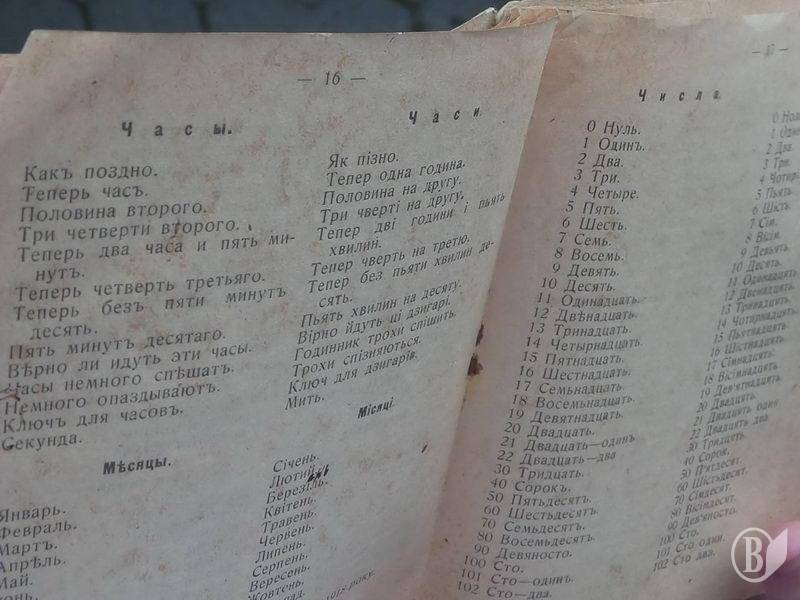 — 16 —
Часы.
Какъ поздно.
Теперь часъ.
Половина второго.
Три четверти второго.
Теперь два часа и пять ми-
нутъ.
Теперь четверть третьяго.
Теперь безъ пяти минутъ
десять.
Пять минутъ десятаго.
Вѣрно ли идутъ эти часы.
Часы немного спѣшатъ.
Немного опаздываютъ.
Ключъ для часовъ.
Секунда.
Мѣсяцы.
Январь.
Февраль.
Мартъ.
Апрѣль.
Май.
Часи
Як пізно.
Тепер одна година.
Половина на другу.
Три чверті на другу.
Тепер дві години і пьять
хвилин.
Тепер чверть на третю.
Тепер без пьяти хвилин де-
сять.
Пьять хвилин на десяту.
Вірно йдуть ці дзигарі.
Годинник трохи спішить.
Трохи спізняються.
Ключ для дзигарів.
Мить.
Місяці.
Січень.
Лютий.
Березіль.
Квітень.
Травень.
Червень.
Липень.
Серпень.
Вересень.
Жовтень.
Числа
0 Нуль.
1 Одинъ.
2 Два.
3 Три.
4 Четыре.
5 Пять.
6 Шесть.
7 Семь.
8 Восемь.
9 Девять.
10 Десять.
11 Одинадцать.
12 Двѣнадцать.
13 Тринадцать.
14 Четырнадцать.
15 Пятнадцать.
16 Шестнадцать.
17 Семьнадцать.
18 Восемьнадцать.
19 Девятнадцать.
20 Двадцать.
21 Двадцать—одинъ
22 Двадцать—два
30 Тридцать.
40 Сорокъ.
50 Пятьдесятъ.
60 Шестьдесятъ.
70 Семьдесятъ.
80 Восемьдесятъ.
90 Девяносто.
100 Сто.
101 Сто—одинъ.
102 Сто—два.
2 Два.
3 Три.
5 Пьять.
6 Шість.
7 Сім.
8 Вісім.
9 Девьять.
10 Десять.
11 Одинадцять.
12 Дванадцять.
13 Тринадцять.
14 Чотирнадцять.
15 Пьятнадцять.
16 Шістнадцять.
17 Сімнадцять.
18 Вісімнадцять.
19 Дев'ятнадцять.
20 Двадцять.
21 Двадцять один
22 Двадцять два
30 Тридцять.
40 Сорок.
50 П'ятдесят.
60 Шістьдесят.
70 Сімдесят.
80 Вісімдесят.
90 Дев'яносто.
100 Сто.
101 Сто один.
102 Сто два.
В